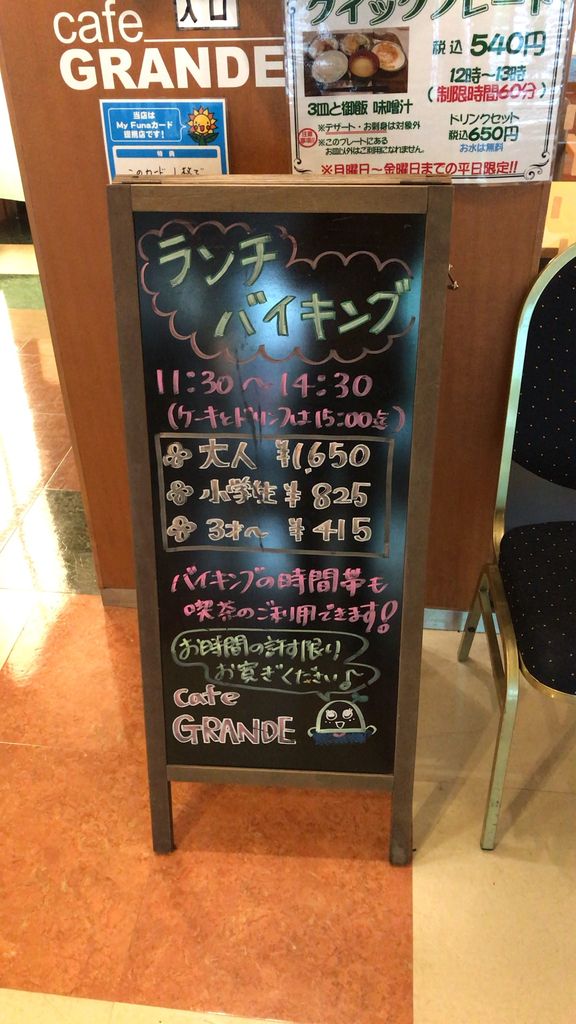 cafe
GRANDE
入口
クイックプレート
税込 540円
12時~13時
(制限時間60分)
3皿と御飯 味噌汁
※デザート・お刺身は対象外
※このプレートにある
お皿以外はご利用になれません。
ドリンクセット
税込650円
お水は無料
※月曜日~金曜日までの平日限定!!
当店は
My Funaカード
提携店です!
特典
このカード1枚で
ランチ
バイキング
11:30~14:30
(ケーキとドリンクは15:00迄)
大人 ¥1,650
小学生 ¥825
3才~ ¥415
バイキングの時間帯も
喫茶のご利用できます!
お時間の許す限り
お寛ぎください♪
cafe
GRANDE